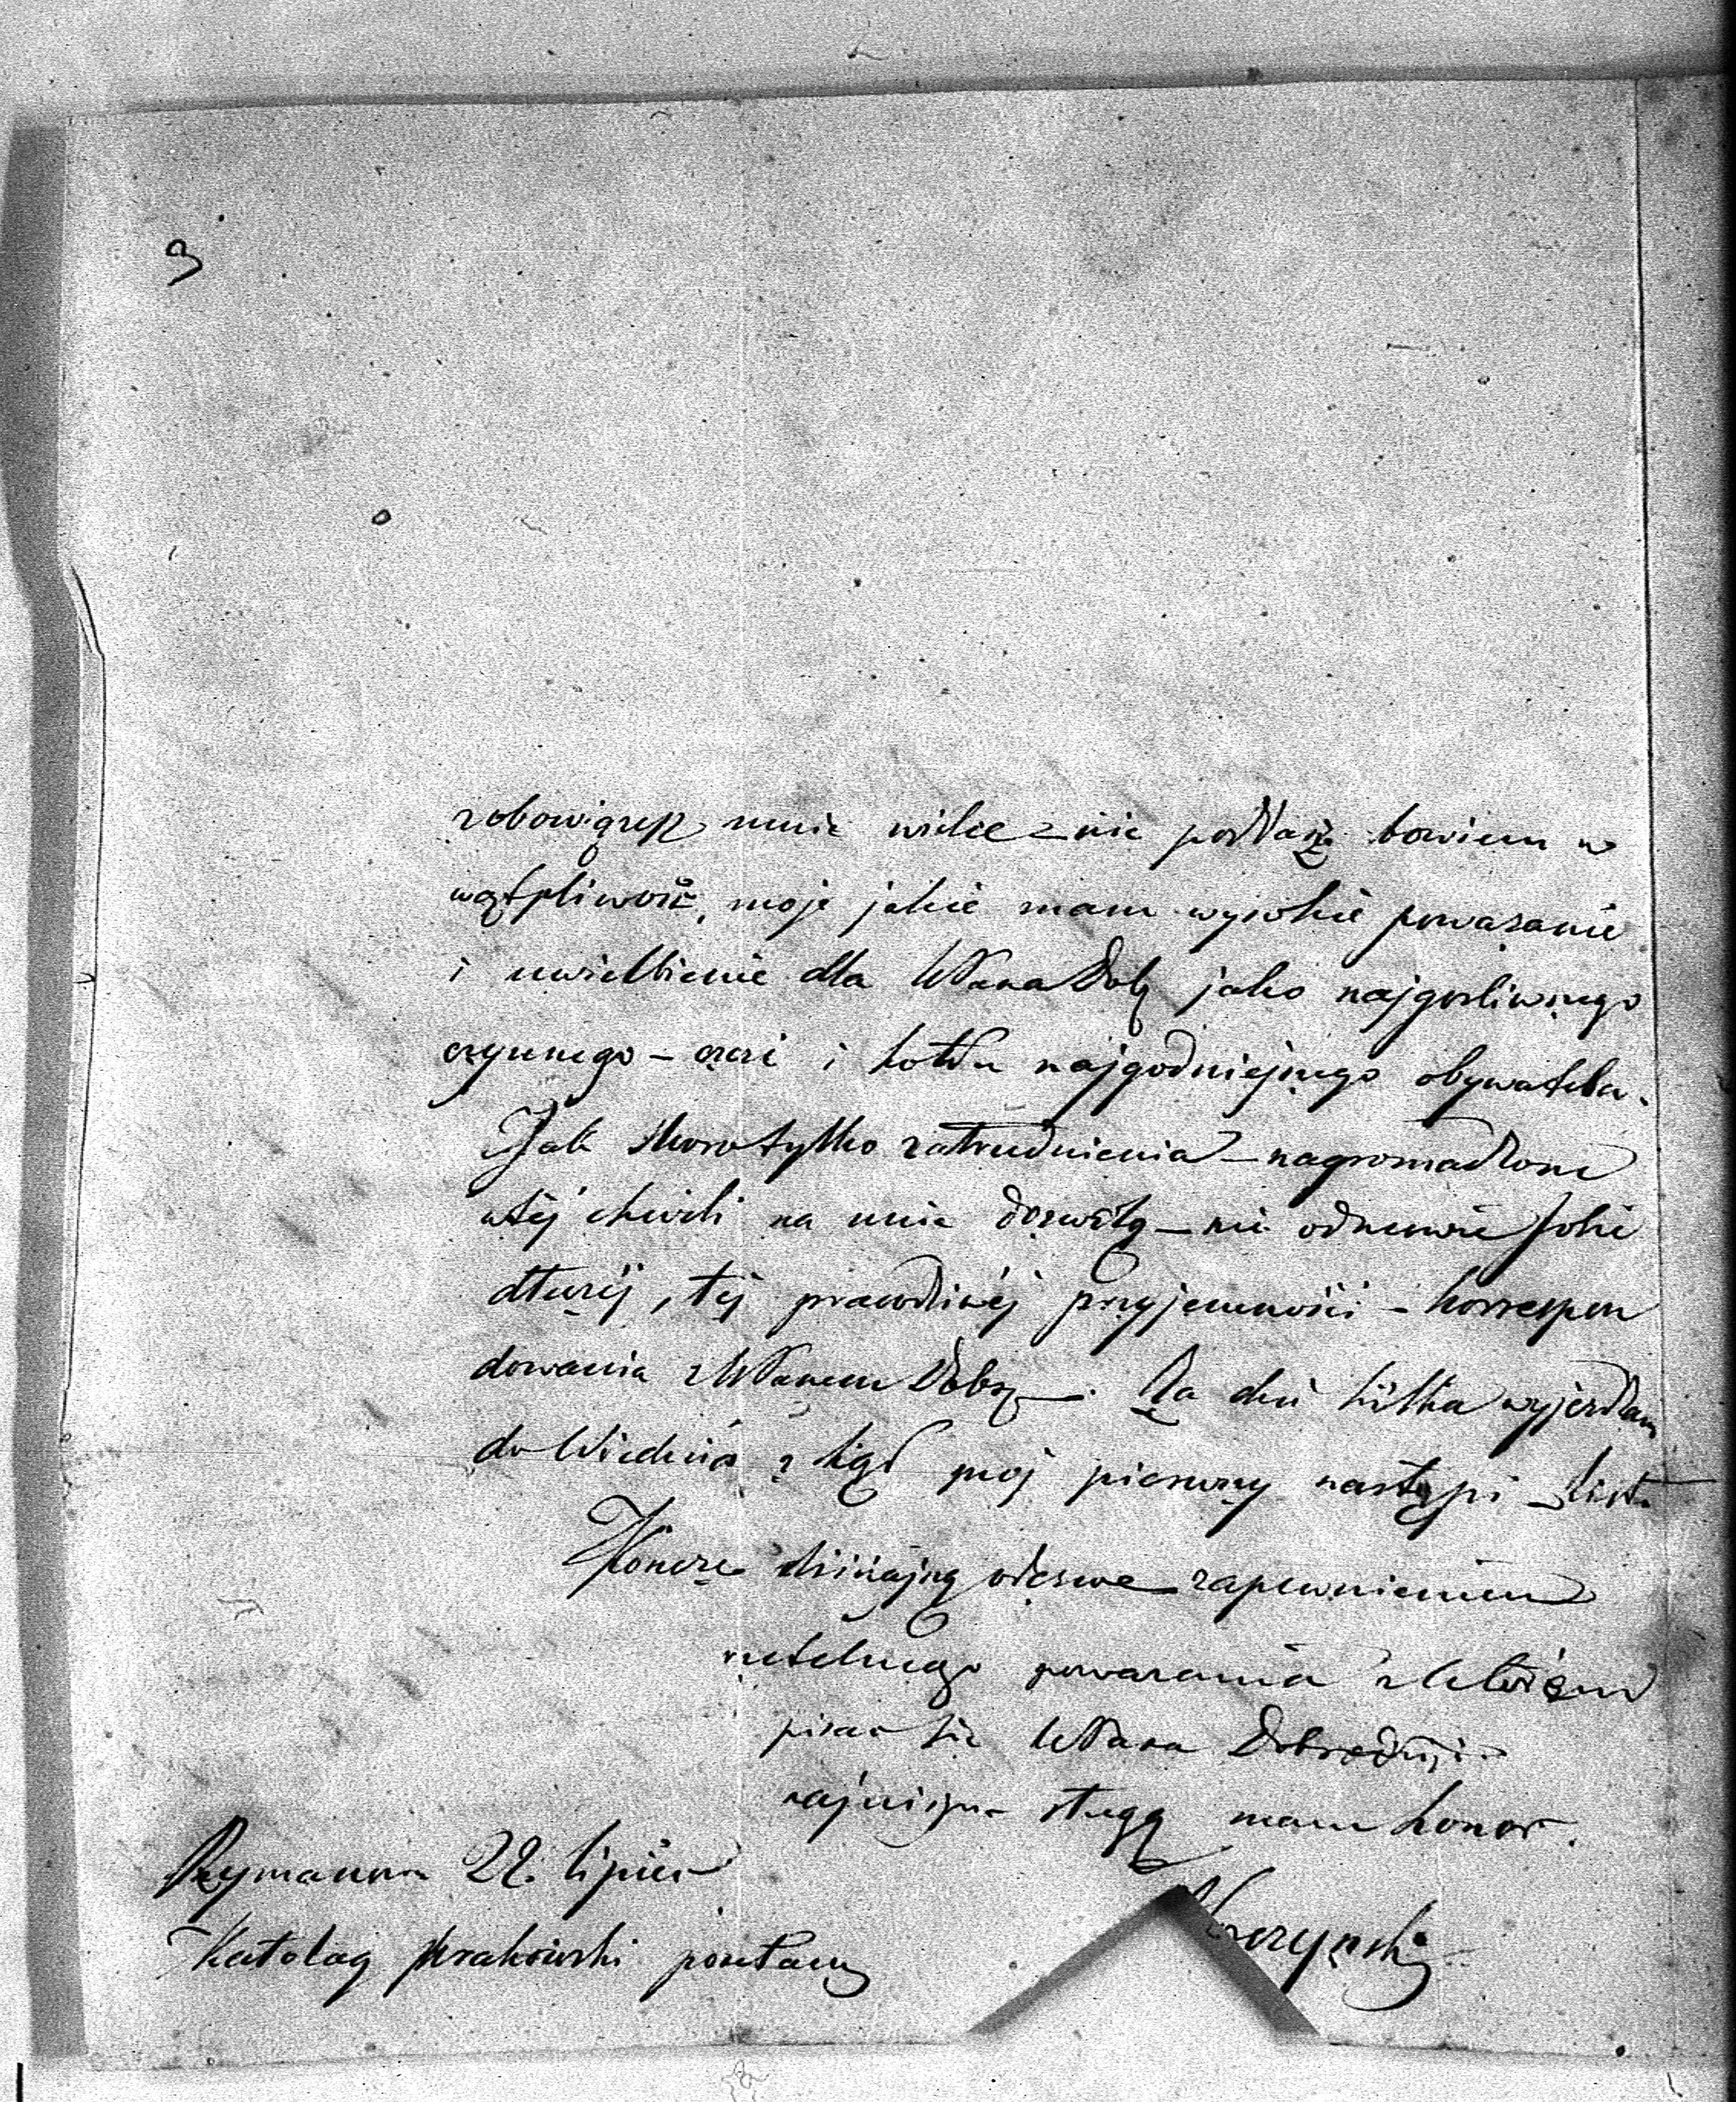 3
zobowiązesz mnie wielce – nie podasz bowiem w
wątpliwość, moje jakie mam wysokie poważanie
i uwielbienie dla WPana Dob jako najgorliwszego
czynnego – czci i hołdu najgodniejszego obywatela.
Jak skoro tylko zatrudnienia – nagromadzone
w tej chwili na mnie dozwolą – nie odmówię sobie
dłużej, tej prawdziwej przyjemności – korrespon
dowania z WPanem Dobrz. Za dni kilka wyjeżdżam
do Wiednia z kąd moj pierwszy nastąpi list.
Kończę dzisiejszą odezwę zapewnieniem
rzetelnego poważania z którem
pisać się WPana Dobrodzieja
najniższym sługą mam honor.
Rymanow 22. lipca
Katolog krakowski posełam